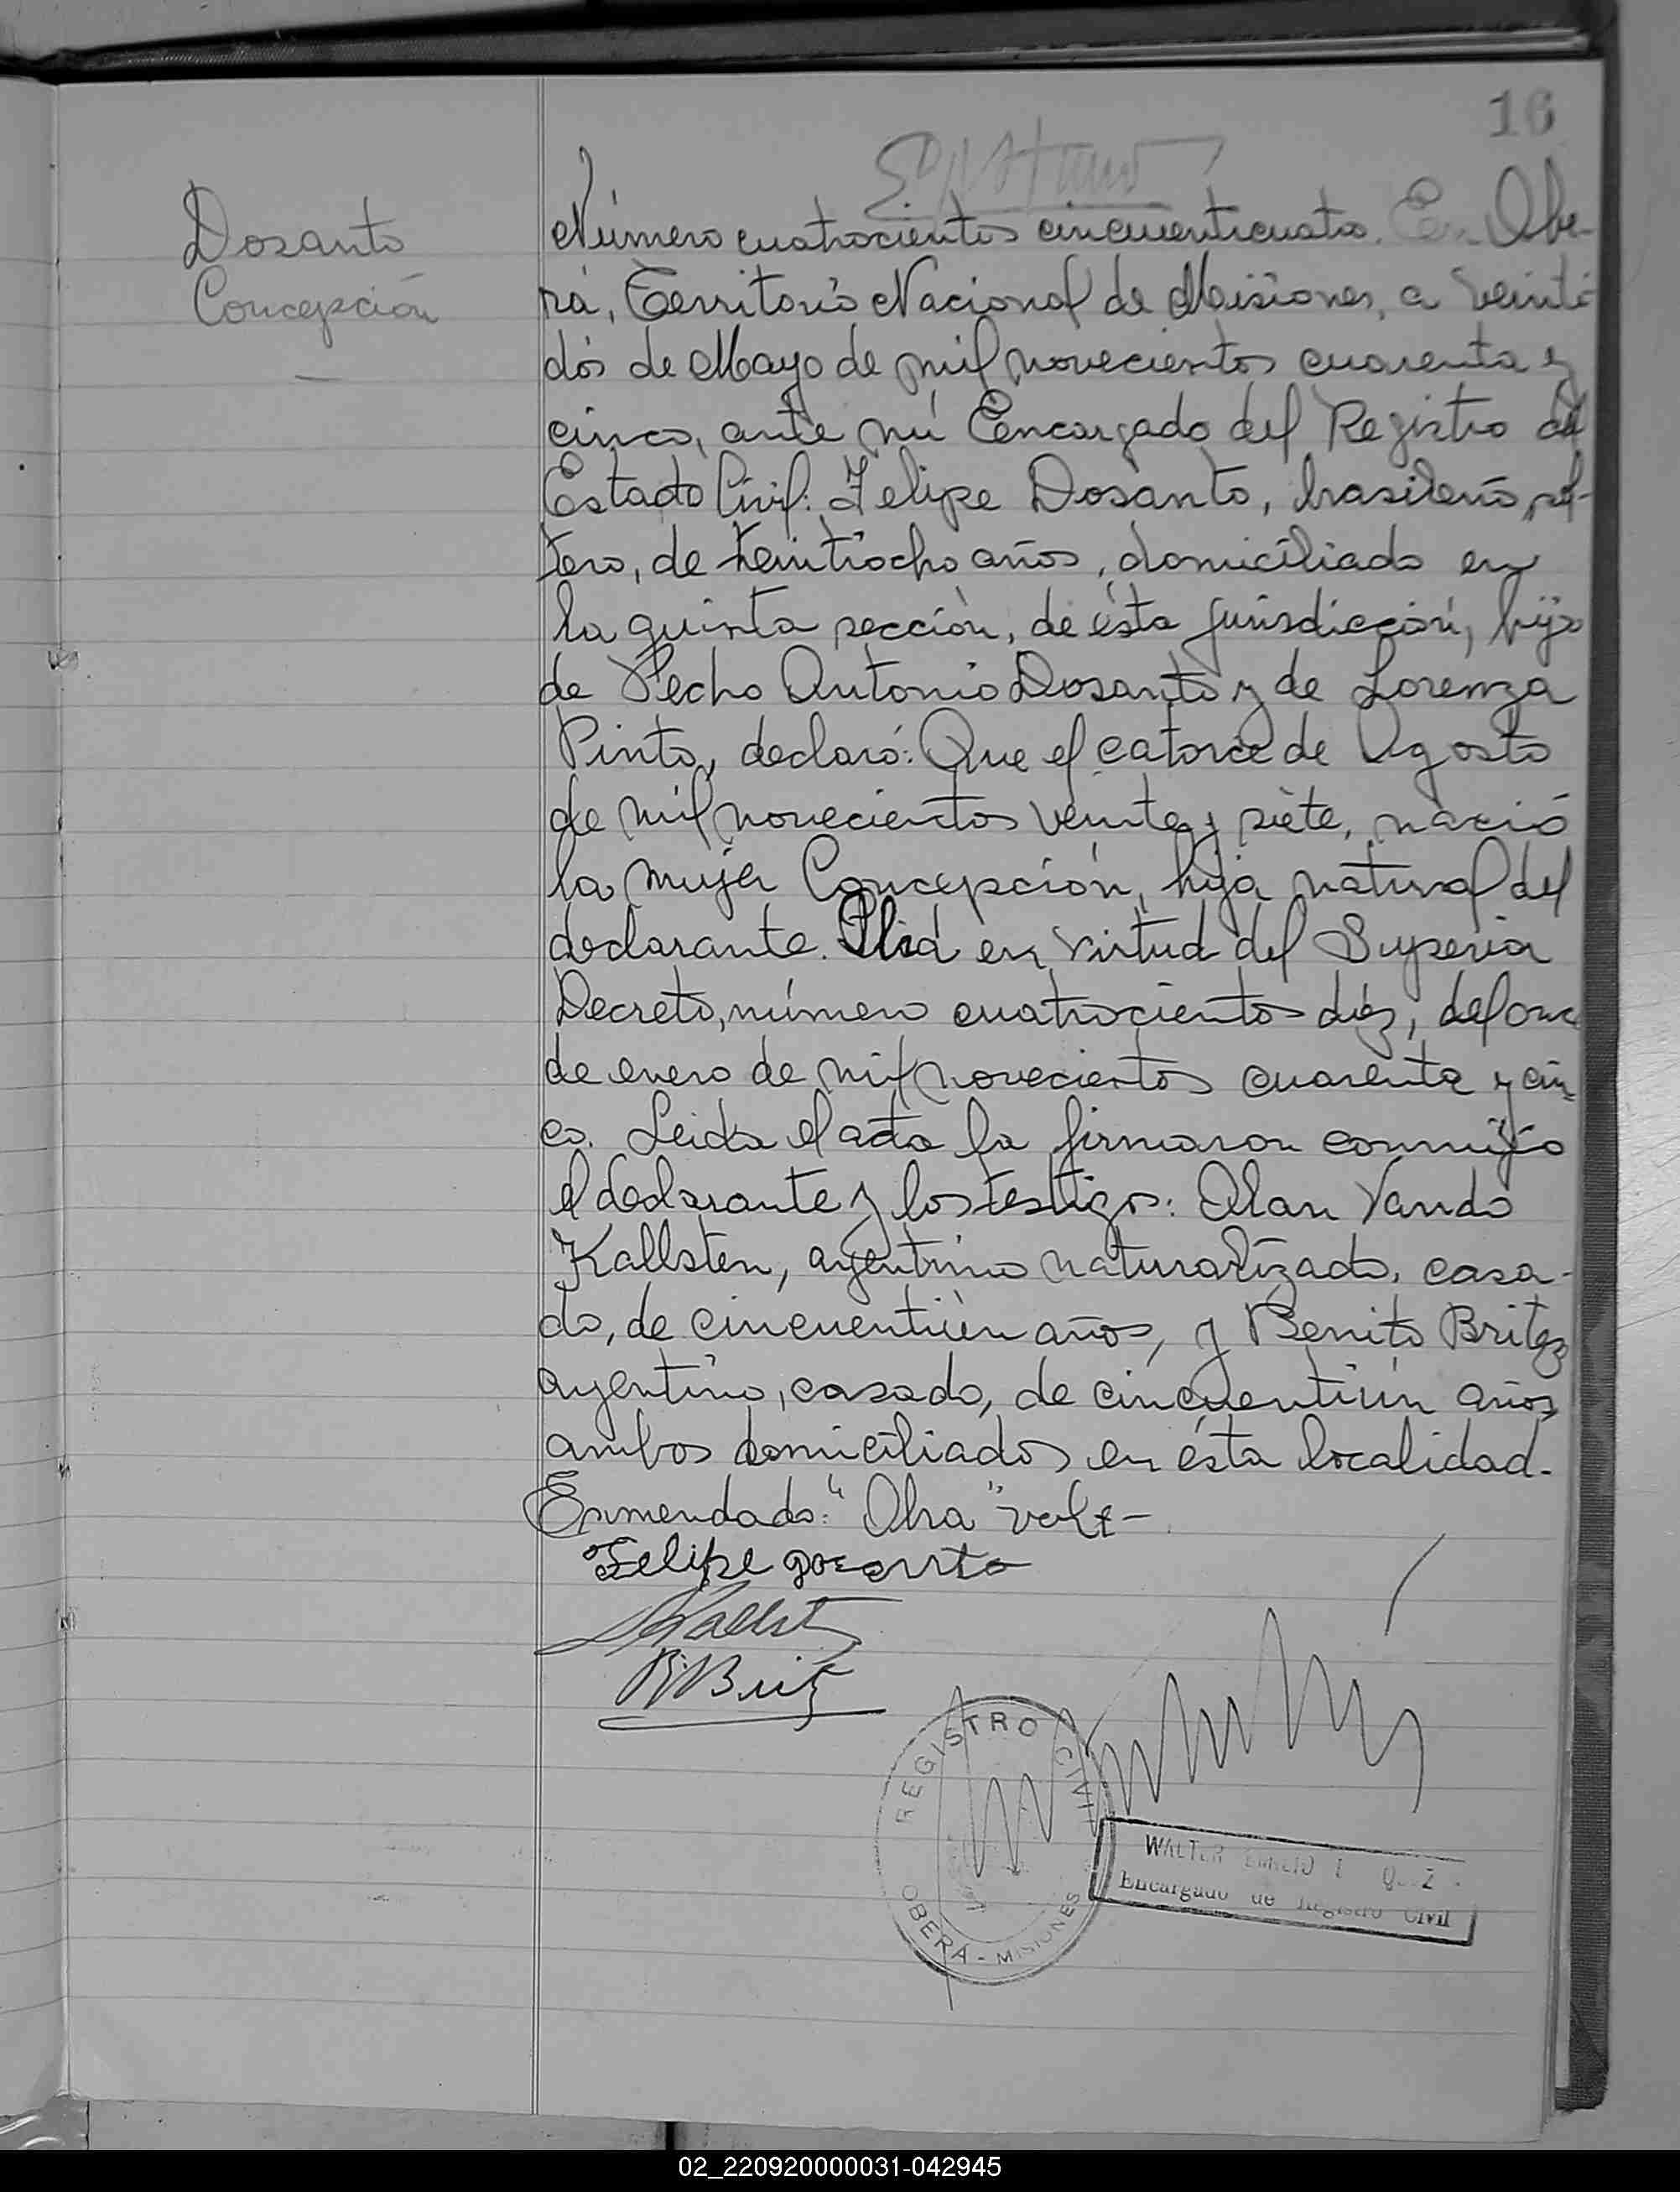 16
Dosanto
Concepción
Número cuatrocientos cincuenticuatro. En Obe-
rá, Territorio Nacional de Misiones, a veinti
dós de Mayo de mil novecientos cuarenta y
cinco, ante mí Encargado del Registro del
Estado Civil: Felipe Dosanto, brasileño, sol-
tero, de treintiocho años, domiciliado en
la quinta sección, de ésta jurisdicción, hijo
de Pedro Antonio Dosanto y de Lorenza
Pinto, declaró: Que el catorce de Agosto
de mil novecientos veinte y siete, nació
la mujer Concepción, hija natural del
declarante. en virtud del Superior
Decreto, número cuatrocientos diéz, del once
de enero de mil novecientos cuarenta y cin-
co. Leida el acta la firmaron conmigo
el declarante y los testigos: Olan Vando
Kallsten, argentino naturalizado, casa-
do, de cincuentiún años, y Benito Britez
argentino, casado, de cincuentiún años,
ambos domiciliados en ésta localidad.
Enmendado: "Obra" vale-
Felipe dosanto
Kallst
B. Britz
REGISTRO CIVIL
OBERÁ - MISIONES
WALTER EMILIO
Encargado de Registro Civil
02_220920000031-042945